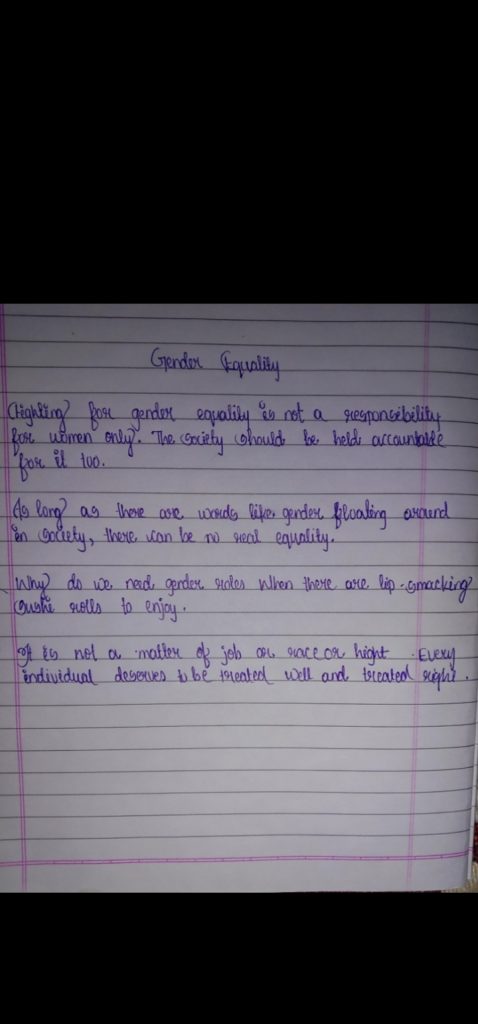 Gender Equality
Fighting for gender equality is not a responsibility
for women only. The society should be held accountable
for it too.
As long as there are words like gender floating around
in society, there can be no real equality.
Why do we need gender roles when there are lip-smacking
sushi rolls to enjoy.
It is not a matter of job or race or hight. Every
individual deserves to be treated well and treated right.